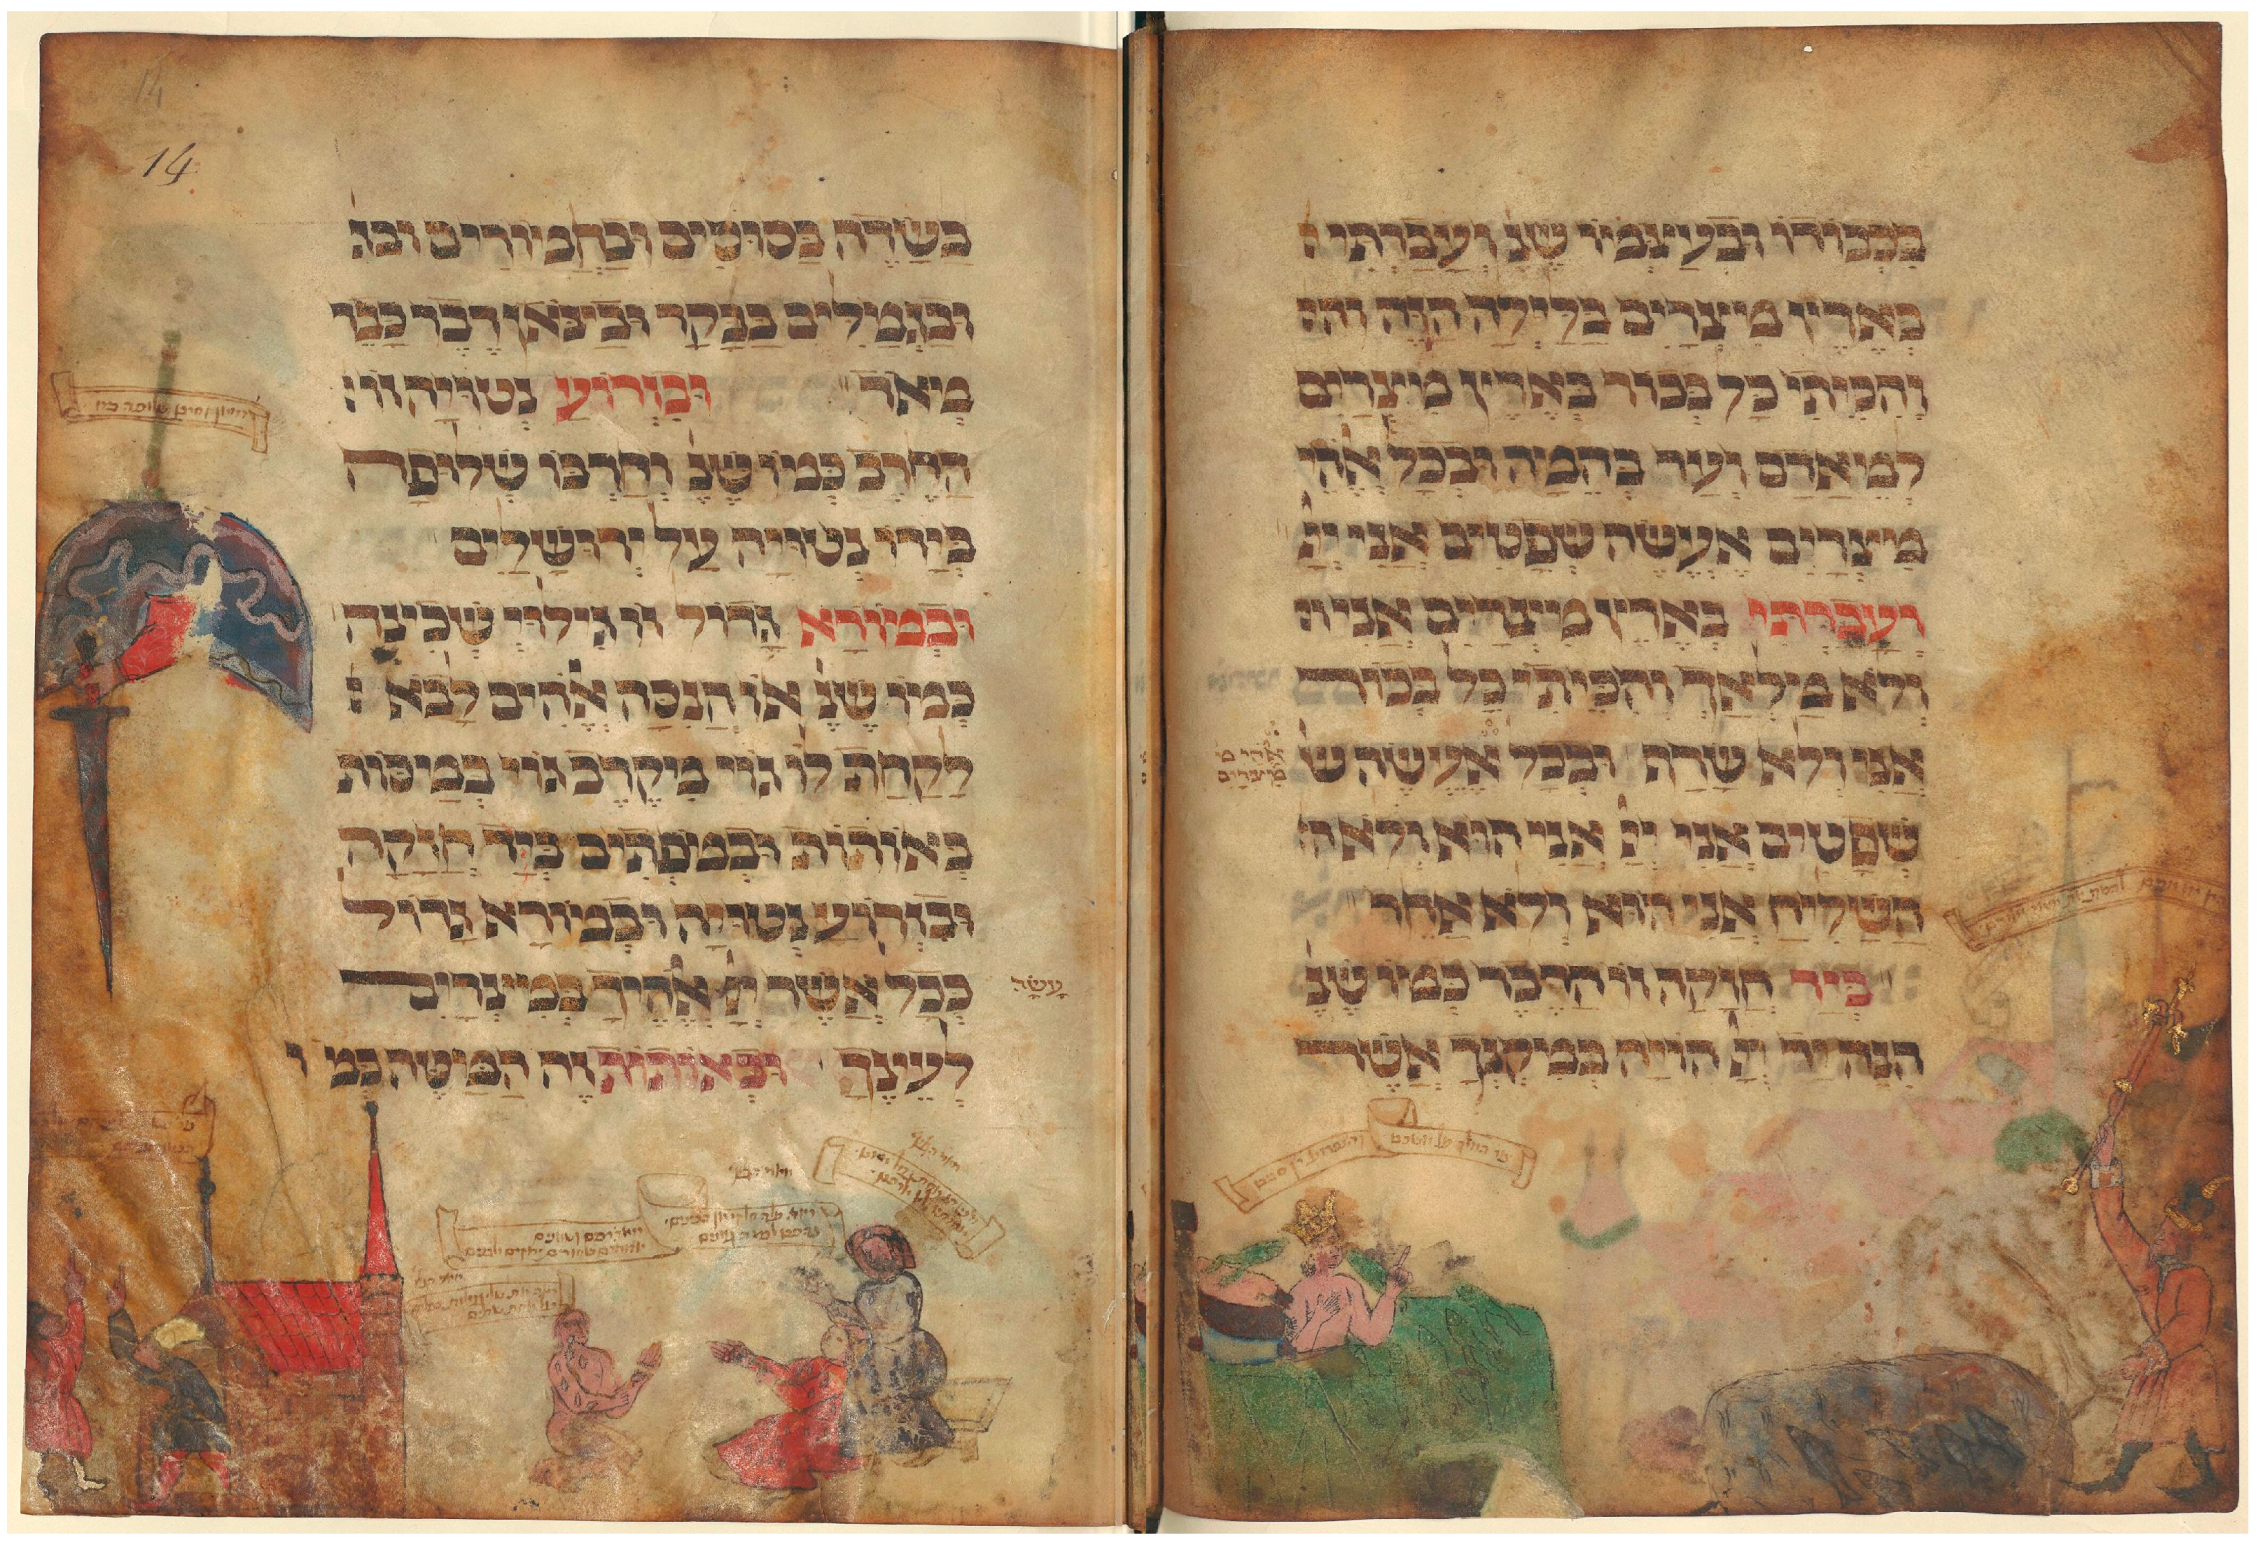 בכבודו ובעצמו שנ ועברתי
בארץ מצרים בלילה הזה והכ
והכיתי כל בכור בארץ מצרים
למאדם ועד בהמה ובכל אלהי
מצרים אעשה שפטים אני יי
ועברתי בארץ מצרים אני ו
ולא מלאך והכיתי כל בכור
אני ולא שרף ובכל אעשה ש
אלהי מצרים
שפטים אני יי אני הוא ולא ה
השליח אני הוא ולא אחר
ביד חזקה זו הדבר כמו שנ
הנה יד יי הויה במקנך אשר
14
בשדה בסוסים ובחמורים ובג
ובגמלים בבקר ובצאן דבר כבד
מאד ובזרוע נטויה זו
החרב כמו שנ וחרבו שלופה
בידו נטויה על ירושלים
ובמורא גדול זו גילוי שכינה
כמו שנ או הנסה אלהים לבא
לקחת לו גוי מקרב גוי במסות
באותות ובמפתים ביד חזקה
ובזרוע נטויה ובמורא גדול
ככל אשר יי אלהיך במצרים
עשה
לעינך ובאותות זה המטה כמו